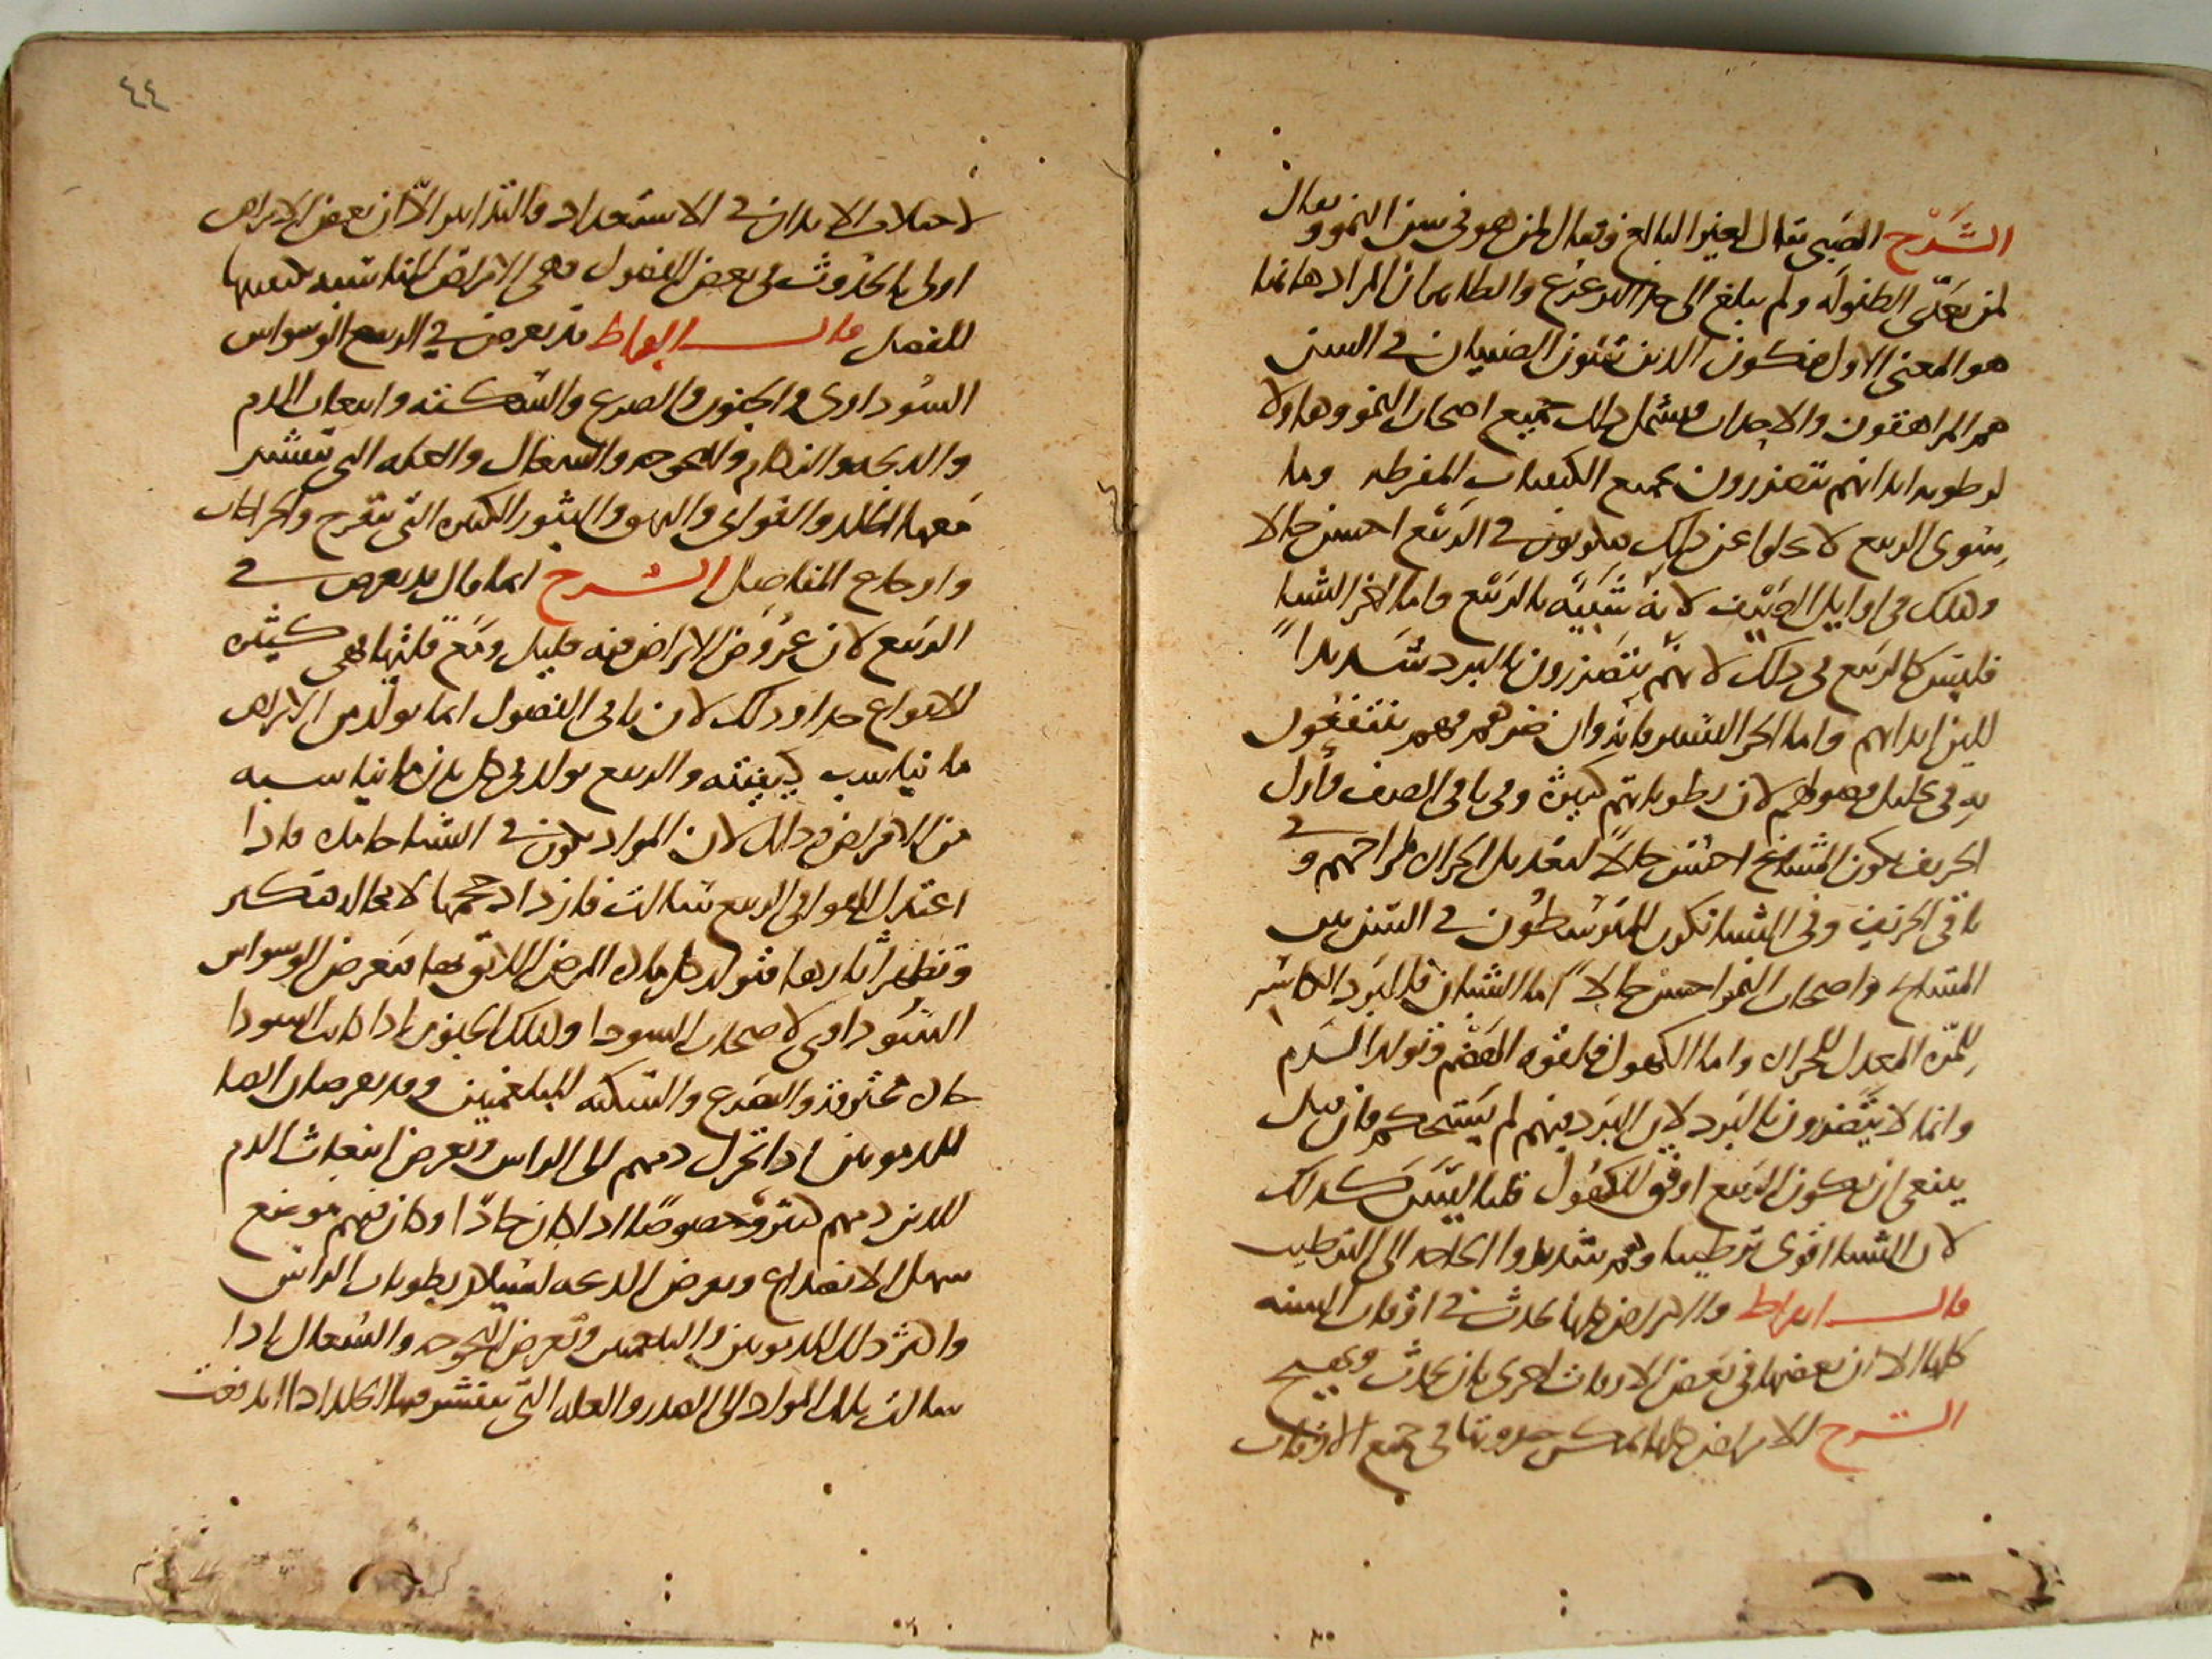 الشرح الصبى يقال لغير البالغ ويقال لمن هو فى سن النمو ويقال
لمن تعدى الطفوله ولم يبلغ الى حد الترعرع والظاهر ان المراد هاهنا
هو المعنى الاول فيكون الذين يتلون الصبيان فى السن
هم المراهقون والاحداث ويشمل ذلك جميع اصحاب النمو وهاولا
لرطوبه ابدانهم يتضررون بجميع الكيفيات المفرطه وما
سوى الربيع لا يخلوا عن ذلك فيكونون فى الربيع احسن حالا
وكذلك فى اوايل الصيف لانه شبيه بالربيع واما اخر الشتا
فليس كالربيع فى ذلك لانهم يتضررون بالبرد شديدا
للين ابدانهم واما الحر اليسير فانه وان ضرهم فهم ينتفعون
به فى تحليل فضولهم لان رطوباتهم كثيرة وفى باقى الصيف واول
الخريف يكون المشايخ احسن حالا لتعديل الحرارة مزاجهم وفى
باقى الخريف وفى الشتا تكون المتوسطون فى السن بين
المشايخ واصحاب النمو احسن حالا اما الشبان فللبرد الكاسر
للمرة المعدل للحرارة واما الكهول فلقوه الهضم وتولد الدم
وانما لا يتضررون بالبرد لان البرد فيهم لم يستحكم فان قيل
ينبغى ان يكون الربيع اوفق للكهول قلنا ليس كذلك
لان الشتا اقوى ترطيبا وهم شديدوا الحاجه الى الترطيب
قال ابقراط والامراض كلها تحدث فى اوقات السنه
كلها الا ان بعضها فى بعض الاوقات احرى بان يحدث ويهيج
الشرح الامراض كلها يمكن حدوثها فى جميع الاوقات
٤٤
لاختلاف الابدان فى الاستعداد والتدابير الا ان بعض الامراض
اولى بالحدوث فى بعض الفصول وهى الامراض المناسبه كيفيتها
للفصل قال ابقراط قد يعرض فى الربيع الوسواس
السوداوى والجنون والصرع والسكته وانبعاث الدم
والذبحه والزكام والبحوحه والسعال والعله التى ينقشر
معها الجلد والقوابى والبهق والبثور الكثيره التى تتقرح والخراجات
واوجاع المفاصل الشرح انما قال قد يعرض فى
الربيع لان عروض الامراض فيه قليل ومع قلتها فهى كثيره
الانواع جدا وذلك لان باقى الفصول انما يولد من الامراض
ما يناسب كيفيته والربيع يولد فى كل بدن ما يناسبه
من الامراض وذلك لان المواد يكون فى الشتا جامده فاذا
اعتدل الهوا فى الربيع سالت فازداد حجمها لا محاله فتكثر
وتظهر اثارها فتولد كل ماده المرض اللايق بها فيعرض الوسواس
السوداوى لاصحاب السودا وكذلك الجنون اذا كانت السودا
حاده محترقه والصرع والسكته للبلغميين وقد يعرضان ايضا
للدمويين اذا تحرك دمهم الى الراس ويعرض انبعاث الدم
للذين دمهم كثير وخصوصا اذا كان حادا او كان فيهم موضع
سهل الانصداع ويعرض الذبحه لسيلان رطوبات الراس
واكثر ذلك للدمويين والبلغميين وتعرض البحوحه والسعال اذا
سالت تلك المواد الى الصدر والعله التى ينقشر معها الجلد اذا اندفعت